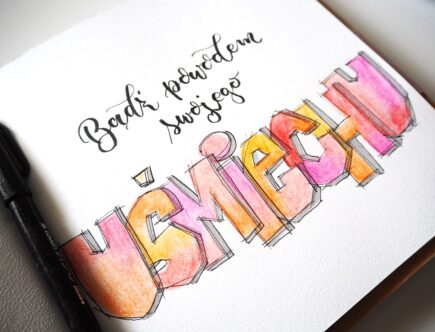 Bądź powodem
swojego
UŚMIECHU